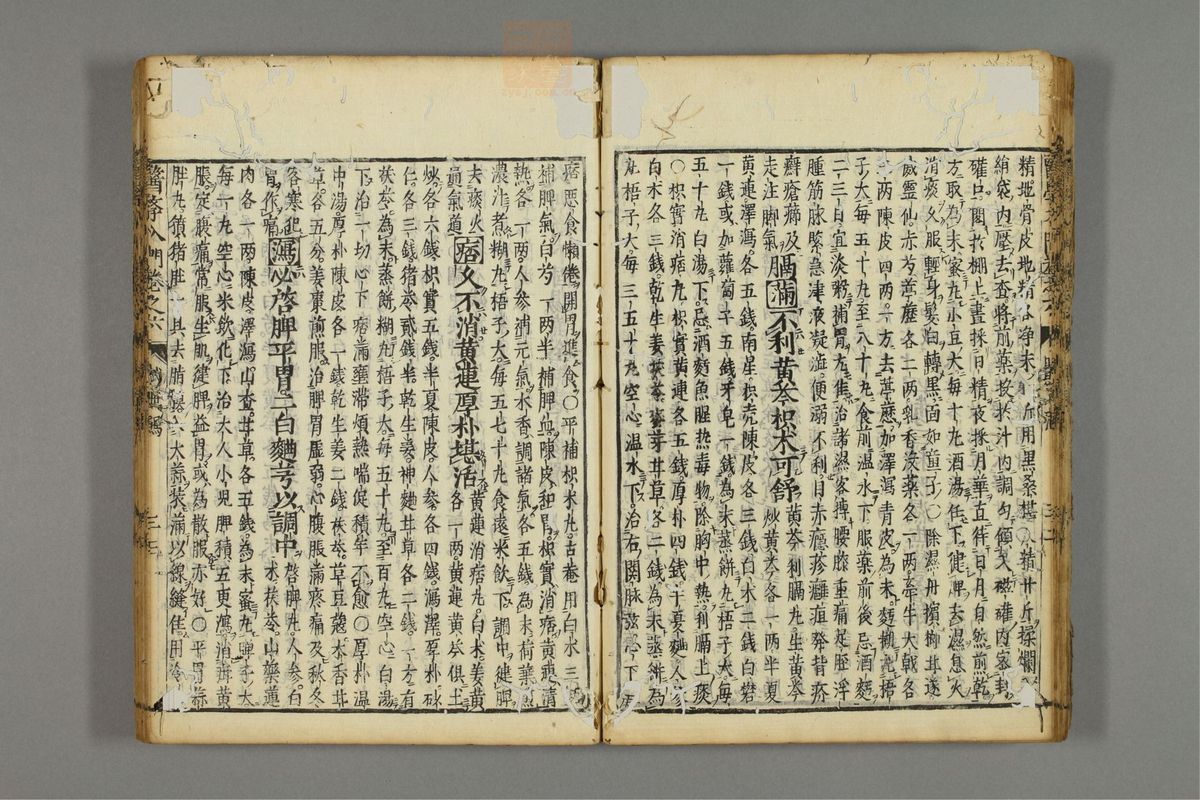 精地骨皮地精各淨末斤用黑桑椹廿斤採爛入
絹袋內壓去查將前藥投於汁內調勻傾入磁確內密封
確口閣於棚上晝採日精夜採月華直待日月自然煎乾
方取為末蜜丸小豆大每十丸酒湯任下健脾去濕息火
消痰久服輕身髮白轉黑面如童子〇除濕丹檳榔甘遂
威靈仙赤芍葶藶各二兩乳香沒藥各一兩牽牛大戟各
三兩陳皮四兩一方去葶藶加澤瀉青皮為末麵糊丸梧
子大每五十丸至八十丸食前溫水下服藥前後忌酒麵
二三日宜淡粥補胃丸治諸濕客搏腰膝重痛足脛浮
腫筋脉緊急津液凝滯便弱不利目赤癮疹癰疽發背疥
癬瘡癤及走注脚氣
膈滿不利黃芩枳朮可舒
黃芩利膈丸生黃芩
炒黃芩各一兩半夏
黃連澤瀉各五錢南星枳壳陳皮各三錢白朮二錢白礬
一錢或加蘿蔔子五錢牙皂一錢為末蒸餅丸梧子大每
五十丸白湯下忌酒麵魚腥熱毒物除胸中熱利膈上痰
〇枳實消痞丸枳實黃連各五錢厚朴四錢半夏麯人參
白朮各三錢乾生姜茯苓麥芽甘草各二錢為末蒸餅為
丸梧子大每三五十丸空心溫水下治右関脉弦心下虛
痞惡食懶倦開胃進食〇平補枳朮丸古菴用白朮三兩
補脾氣白芍一兩半補脾血陳皮和胃枳實消痞黃連清
熱各一兩人參補元氣木香調諸氣各五錢為末荷葉
濃汁煮糊丸梧子大每五七十丸食遠米飲下調中健脾
去痰火
益氣道
痞久不消黃連厚朴堪活
黃連消痞丸白朮姜黃
各一兩黃連黃芩俱土
炒各六錢枳實五錢半夏陳皮人參各四錢瀉澤厚朴砂
仁各三錢猪苓貳錢半乾生姜神麯甘草各二錢一方有
茯苓為末蒸餅糊丸梧子大每五十丸至百丸空心白湯
下治一切心下痞滿壅滯煩熱喘促積年不愈〇厚朴溫
中湯厚朴陳皮各一錢乾生姜二錢茯苓草豆蔻木香甘
草各五分姜棗煎服治脾胃虛弱心腹脹滿疼痛及秋冬
客寒犯
胃作痛
瀉必啓脾平胃三白麯芎以調中
啓脾丸人參白
朮茯苓山藥蓮
肉各一兩陳皮澤瀉山查甘草各五錢為末蜜丸彈子大
每一丸空心米飲化下治大人小兒脾積五更瀉消疳黃
脹定腹痛常服生肌健脾益胃或為散服亦好〇平胃蒜
肚丸獖猪肚一具去脂以大蒜裝滿以線縫住用冷
醫學入門卷之六